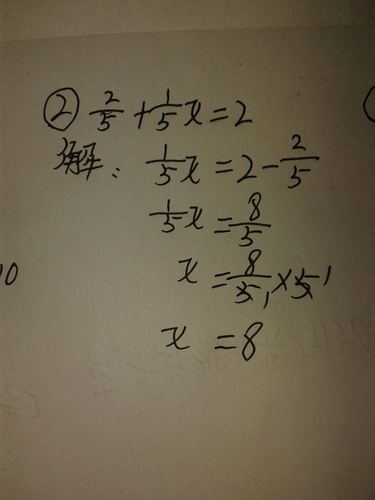 ② 2/5 + 1/5 x = 2
解: 1/5 x = 2 - 2/5
1/5 x = 8/5
x = 8/5 1 × 5 1
x = 8
10